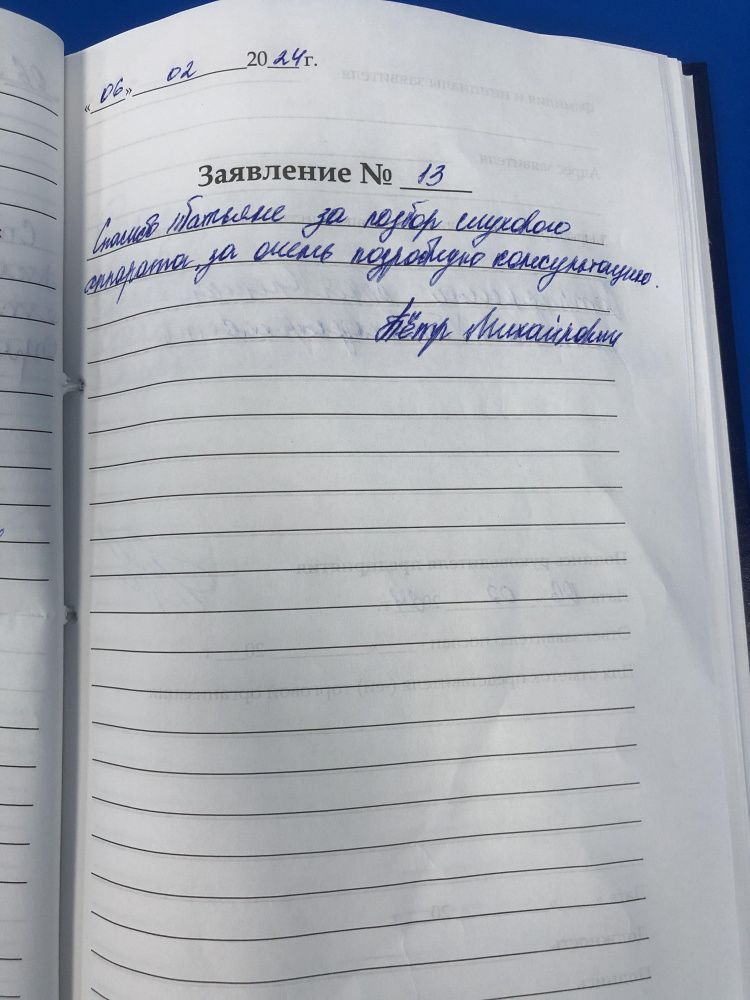 «06» 02 2024 г.
Заявление № 13
Спасибо Татьяне за подбор слухового
аппарата, за очень подробную консультацию.
Пётр Михайлович